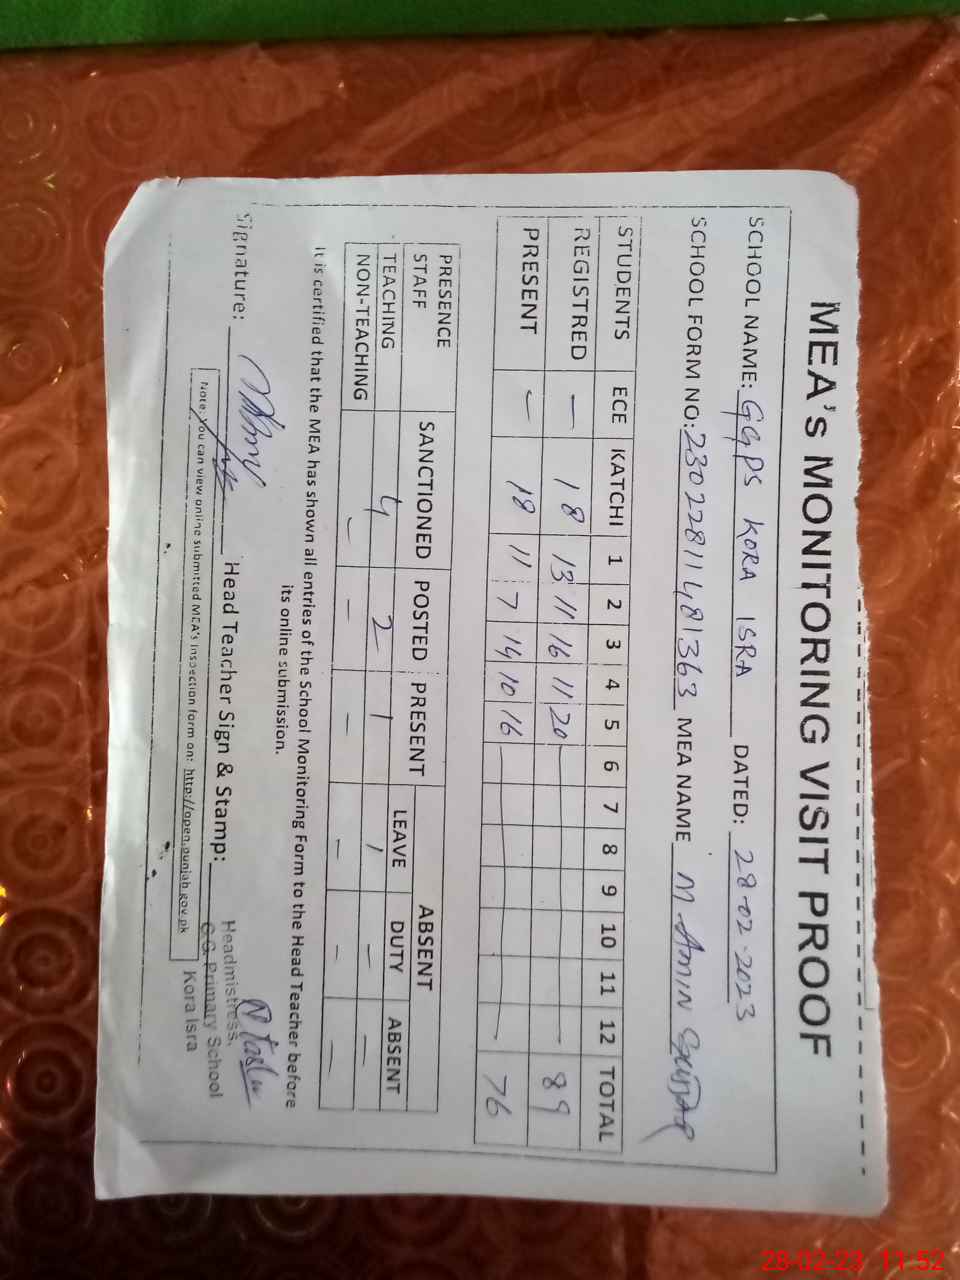 MEA's MONITORING VISIT PROOF
SCHOOL NAME: GGPS KORA ISRA DATED: 28-02-2023
SCHOOL FORM NO: 23022811481363 MEA NAME M Amin
STUDENTS ECE KATCHI 1 2 3 4 5 6 7 8 9 10 11 12 TOTAL
REGISTRED — 18 13 11 16 11 20 — 89
PRESENT — 18 11 7 14 10 16 — 76
PRESENCE STAFF SANCTIONED POSTED PRESENT ABSENT
LEAVE DUTY ABSENT
TEACHING 4 2 1 1 — —
NON-TEACHING — — — — — —
It is certified that the MEA has shown all entries of the School Monitoring Form to the Head Teacher before
its online submission.
Signature: Head Teacher Sign & Stamp:
Headmistress,
G.G. Primary School
Kora Isra
Note: You can view online submitted MEA's Inspection form on: http://open.punjab.gov.pk
28-02-23 11:52